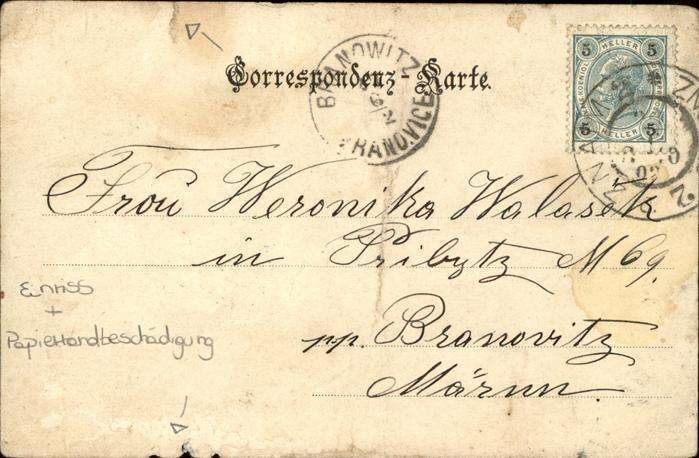 Correspondenz Karte.
BRANOWITZ
VRANOVICE
5 HELLER 5
5 HELLER 5
Frau Weronika Walasek
in Pribytz M 69.
pp. Branovitz
Märnn.
Einriss
+
Papierrandbeschädigung